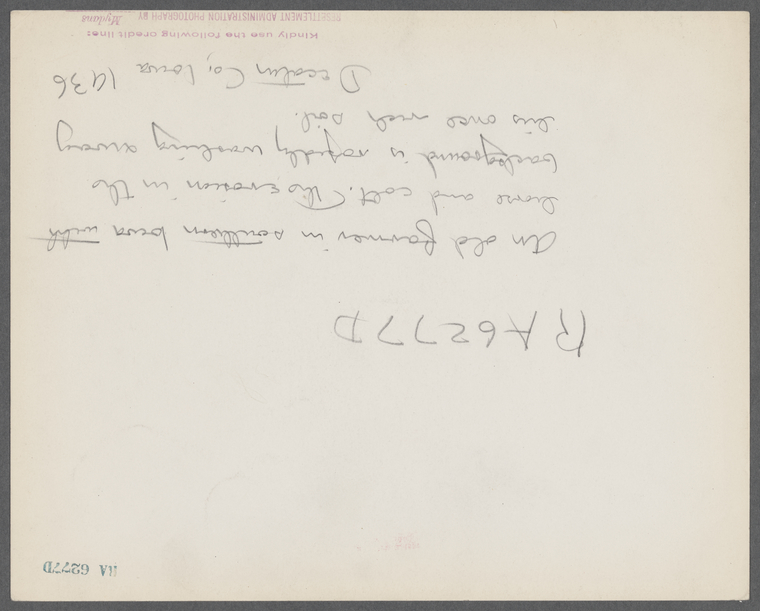 RA 6277D
RA6277D
An old farmer in southern Iowa with
horse and colt. The erosion in the
background is rapidly washing away
his once rich soil.
Decatur Co, Iowa 1936
Kindly use the following credit line:
RESETTLEMENT ADMINISTRATION PHOTOGRAPH BY Mydans